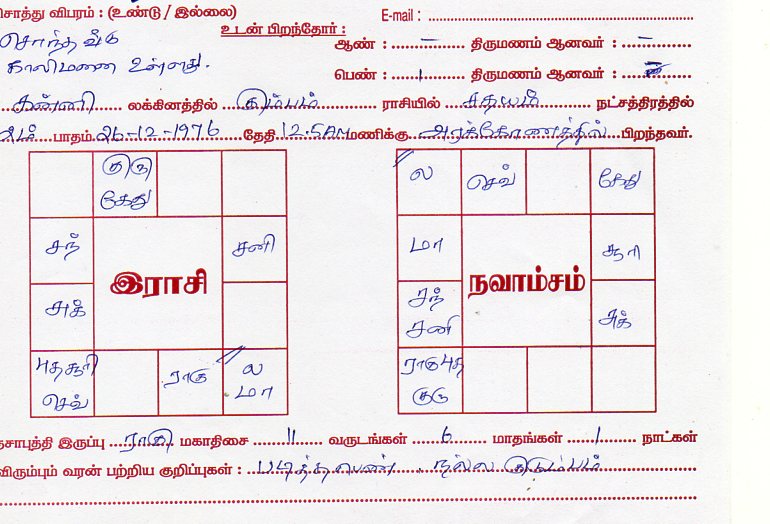 சொத்து விபரம் : (உண்டு / இல்லை)
E-mail :
சொந்த வீடு
உடன் பிறந்தோர் :
ஆண் : – திருமணம் ஆனவர் : –
காலிமனை உள்ளது.
பெண் : 1 திருமணம் ஆனவர் :
கன்னி லக்கினத்தில் கும்பம் ராசியில் சதயம் நட்சத்திரத்தில்
2ம் பாதம் 26-12-1976 தேதி 12.5 AM மணிக்கு அரக்கோணத்தில் பிறந்தவர்.
குரு கேது
சந் சனி
இராசி
சுக்
புத சூரி செவ் ராகு ல மா
ல செவ் கேது
மா சூரி
நவாம்சம்
சந் சனி சுக்
ராகு புத குரு
தசாபுத்தி இருப்பு ராகு மகாதிசை 11 வருடங்கள் 6 மாதங்கள் 1 நாட்கள்
விரும்பும் வரன் பற்றிய குறிப்புகள் : படித்த பெண் . நல்ல குடும்பம்